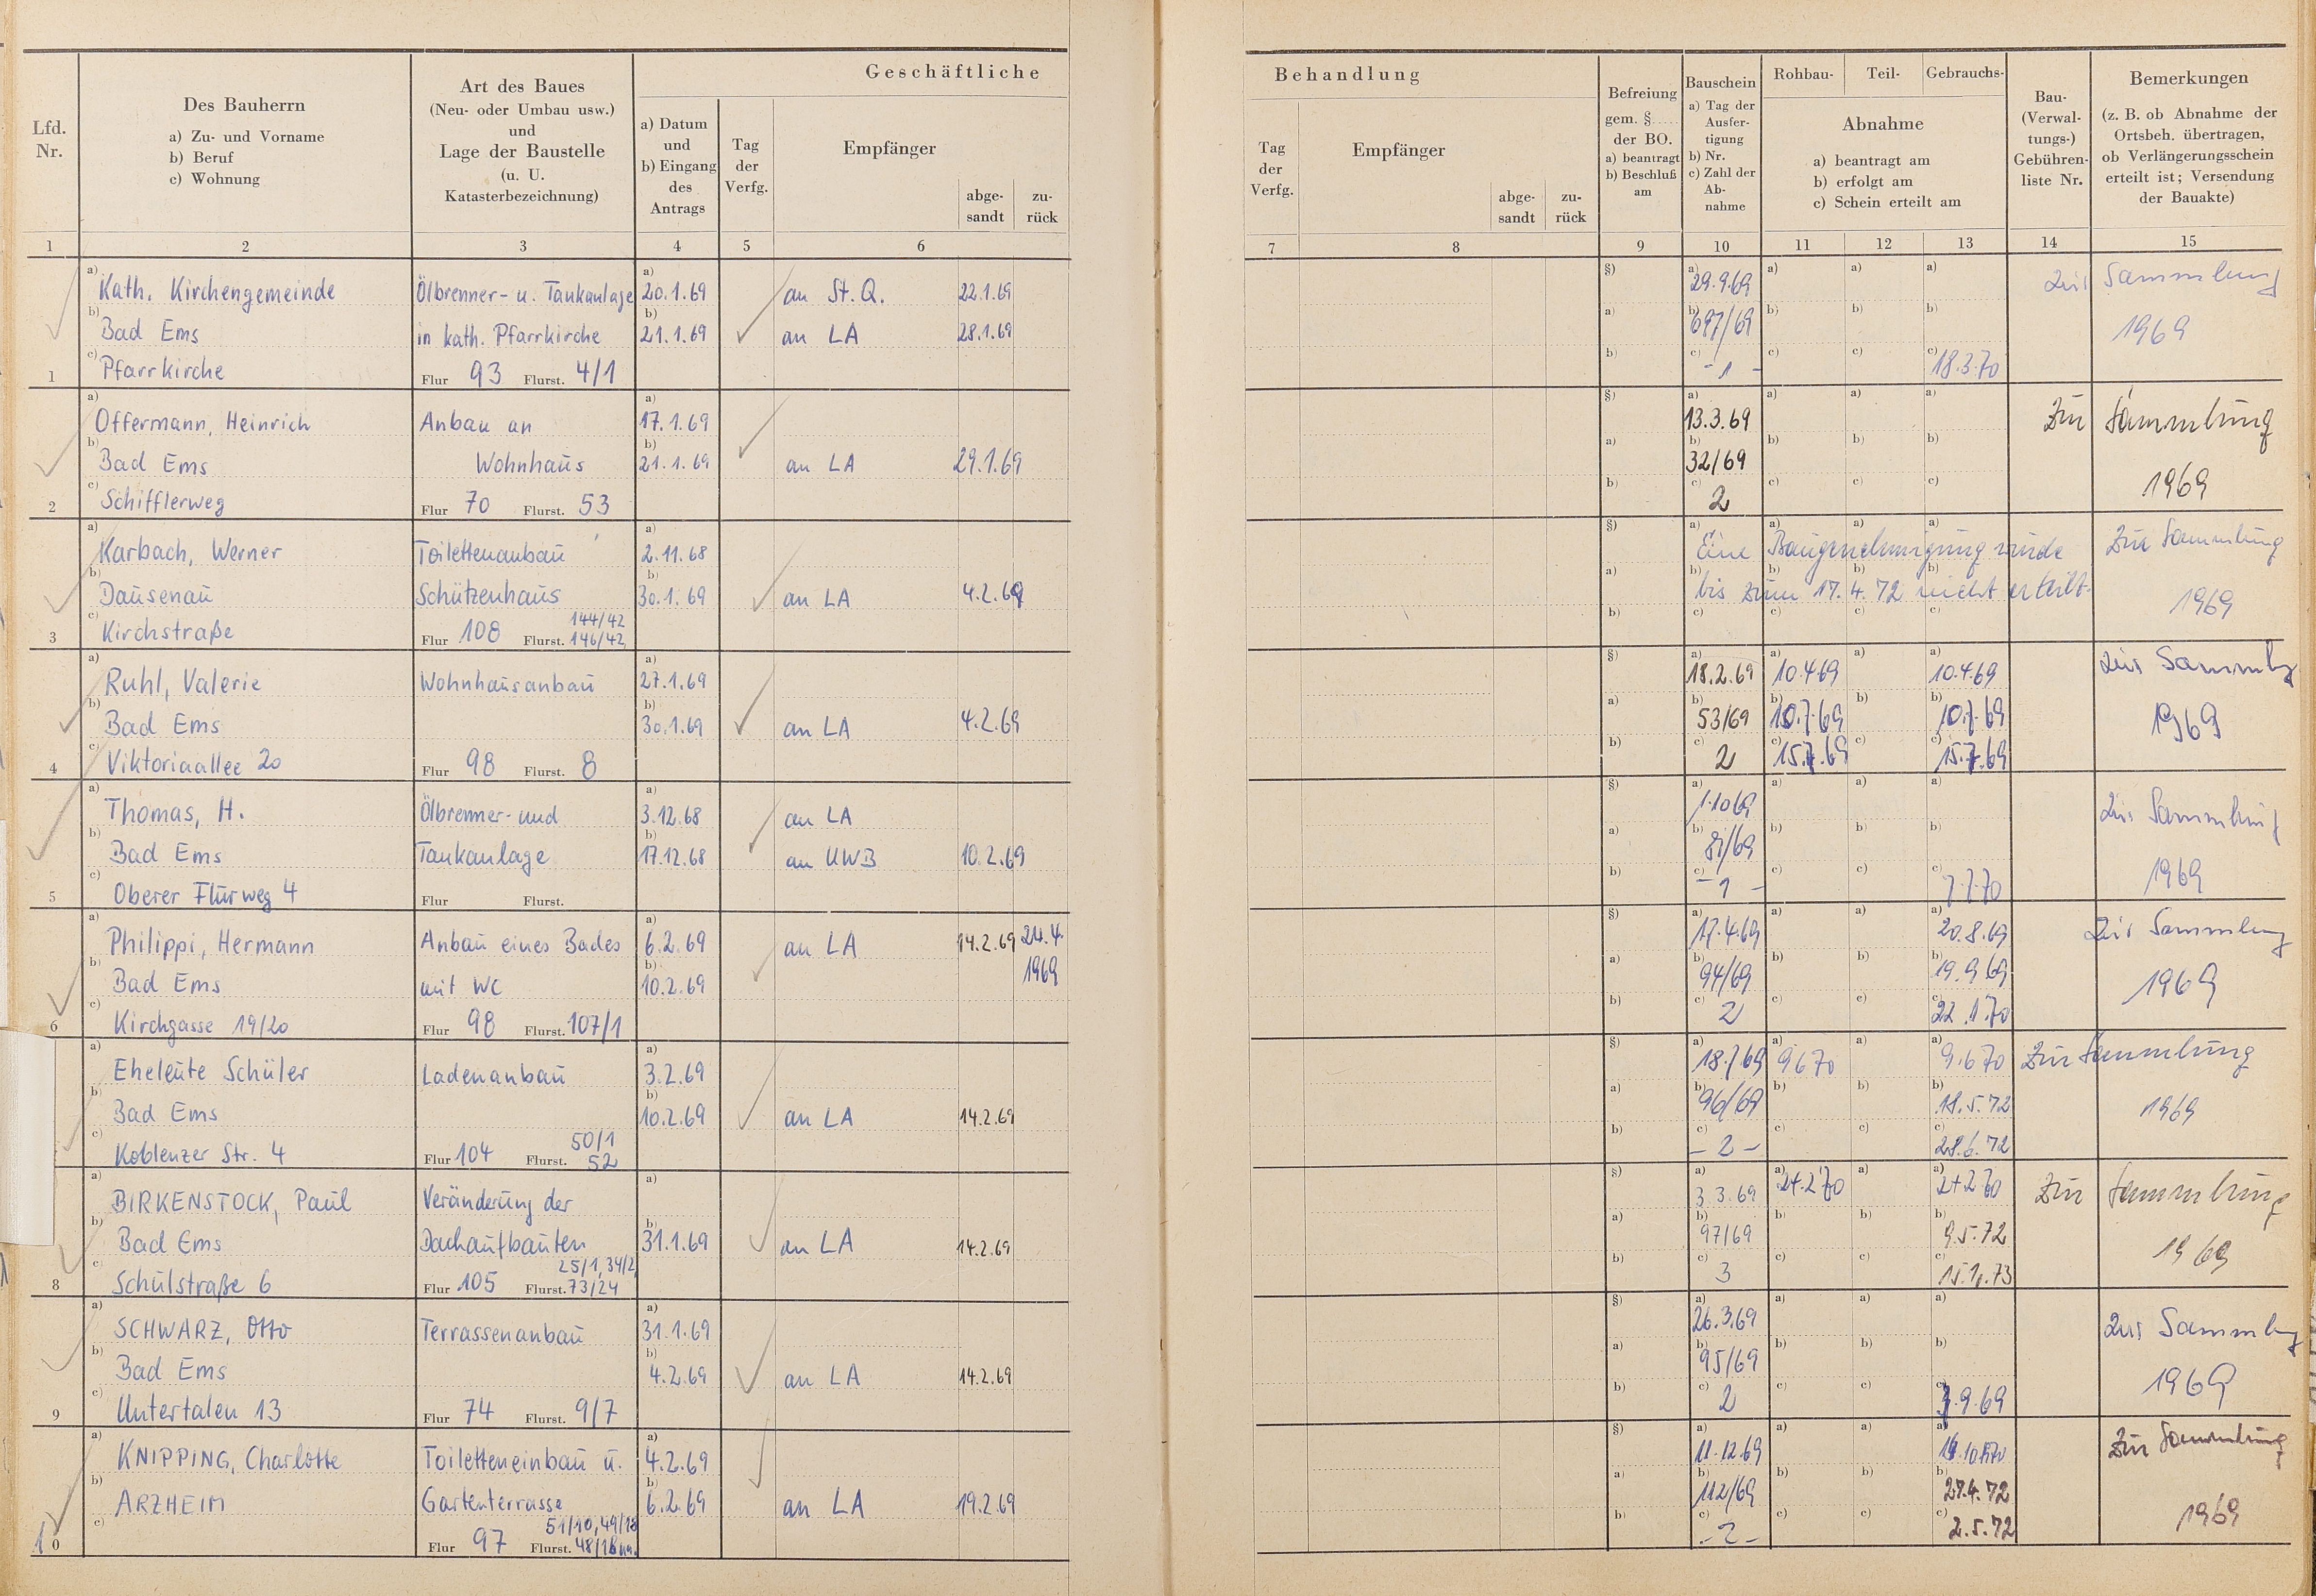 Geschäftliche Behandlung
Lfd. Nr.
Des Bauherrn
a) Zu- und Vorname
b) Beruf
c) Wohnung
Art des Baues
(Neu- oder Umbau usw.)
und
Lage der Baustelle
(u. U.
Katasterbezeichnung)
a) Datum
und
b) Eingang
des
Antrags
Tag
der
Verfg.
Empfänger
abge-
sandt
zu-
rück
Tag
der
Verfg.
Empfänger
abge-
sandt
zu-
rück
Befreiung
gem. §......
der BO.
a) beantragt
b) Beschluß
am
Bauschein
a) Tag der
Ausfer-
tigung
b) Nr.
c) Zahl der
Ab-
nahme
Rohbau- Teil- Gebrauchs-
Abnahme
a) beantragt am
b) erfolgt am
c) Schein erteilt am
Bau-
(Verwal-
tungs-)
Gebühren-
liste Nr.
Bemerkungen
(z. B. ob Abnahme der
Ortsbeh. übertragen,
ob Verlängerungsschein
erteilt ist; Versendung
der Bauakte)
1 2 3 4 5 6 7 8 9 10 11 12 13 14 15
a) Kath. Kirchengemeinde Ölbrenner- u. Tankanlage a) 20.1.69 an St. Q. 22.1.69 §) a) 29.9.69 a) a) a) zur Sammlung
b) Bad Ems in kath. Pfarrkirche b) 21.1.69 an LA 28.1.69 a) b) 697/69 b) b) b) 1969
1 c) Pfarrkirche Flur 93 Flurst. 4/1 b) c) - 1 - c) c) c) 18.3.70
a) Offermann, Heinrich Anbau an a) 17.1.69 §) a) 13.3.69 a) a) a) Zur Sammlung
b) Bad Ems Wohnhaus b) 21.1.69 an LA 29.1.69 a) b) 32/69 b) b) b)
2 c) Schifflerweg Flur 70 Flurst. 53 b) c) 2 c) c) c) 1969
a) Karbach, Werner Toilettenanbau a) 2.11.68 §) a) Eine Baugenehmigung wurde zur Sammlung
b) Dausenau Schützenhaus b) 30.1.69 an LA 4.2.69 a) b) bis zum 17.4.72 nicht erteilt. 1969
3 c) Kirchstraße Flur 108 Flurst. 144/42 146/42 b) c) c) c) c)
a) Ruhl, Valerie Wohnhausanbau a) 27.1.69 §) a) 18.2.69 a) 10.4.69 a) a) 10.4.69 zur Sammlg
b) Bad Ems b) 30.1.69 an LA 4.2.69 a) b) 53/69 b) 10.7.69 b) b) 10.7.69 1969
4 c) Viktoriaallee 20 Flur 98 Flurst. 8 b) c) 2 c) 15.7.69 c) c) 15.7.69
a) Thomas, H. Ölbrenner- und a) 3.12.68 an LA §) a) 1.10.69 a) a) a) zur Sammlung
b) Bad Ems Tankanlage b) 17.12.68 an UWB 10.2.69 a) b) b) b) b)
5 c) Oberer Flurweg 4 Flur Flurst. b) c) - 1 - c) c) c) 7.7.70 1969
a) Philippi, Hermann Anbau eines Bades a) 6.2.69 an LA 14.2.69 24.4. 1969 §) a) 17.4.69 a) a) a) 20.8.69 Zur Sammlung
b) Bad Ems mit WC b) 10.2.69 a) b) 94/69 b) b) b) 19.9.69 1969
6 c) Kirchgasse 19/20 Flur 98 Flurst. 107/1 b) c) 2 c) c) c) 22.1.70
a) Eheleute Schüler Ladenanbau a) 3.2.69 §) a) 18.7.69 a) 9.6.70 a) a) 9.6.70 Zur Sammlung
b) Bad Ems b) 10.2.69 an LA 14.2.69 a) b) 96/69 b) b) b) 18.5.72 1969
c) Koblenzer Str. 4 Flur 104 Flurst. 50/1 52 b) c) - 2 - c) c) c) 28.6.72
a) BIRKENSTOCK, Paul Veränderung der a) §) a) 3.3.69 a) 24.2.70 a) a) 24.2.70 Zur Sammlung
b) Bad Ems Dachaufbauten b) 31.1.69 an LA 14.2.69 a) b) 97/69 b) b) b) 9.5.72 1969
8 c) Schulstraße 6 Flur 105 Flurst. 25/1, 34/2, 73/24 b) c) 3 c) c) c) 15.1.73
a) SCHWARZ, Otto Terrassenanbau a) 31.1.69 §) a) 26.3.69 a) a) a) zur Sammlg
b) Bad Ems b) 4.2.69 an LA 14.2.69 a) b) 95/69 b) b) b) 1969
9 c) Untertalen 13 Flur 74 Flurst. 9/7 b) c) 2 c) c) c) 3.9.69
a) KNIPPING, Charlotte Toiletteneinbau u. a) 4.2.69 §) a) 11.12.69 a) a) a) Zur Sammlung
b) ARZHEIM Gartenterrasse b) 6.2.69 an LA 19.2.69 a) b) 112/69 b) b) b) 27.4.72 1969
10 c) Flur 97 Flurst. 51/10, 49/18 b) c) - 2 - c) c) c) 2.5.72